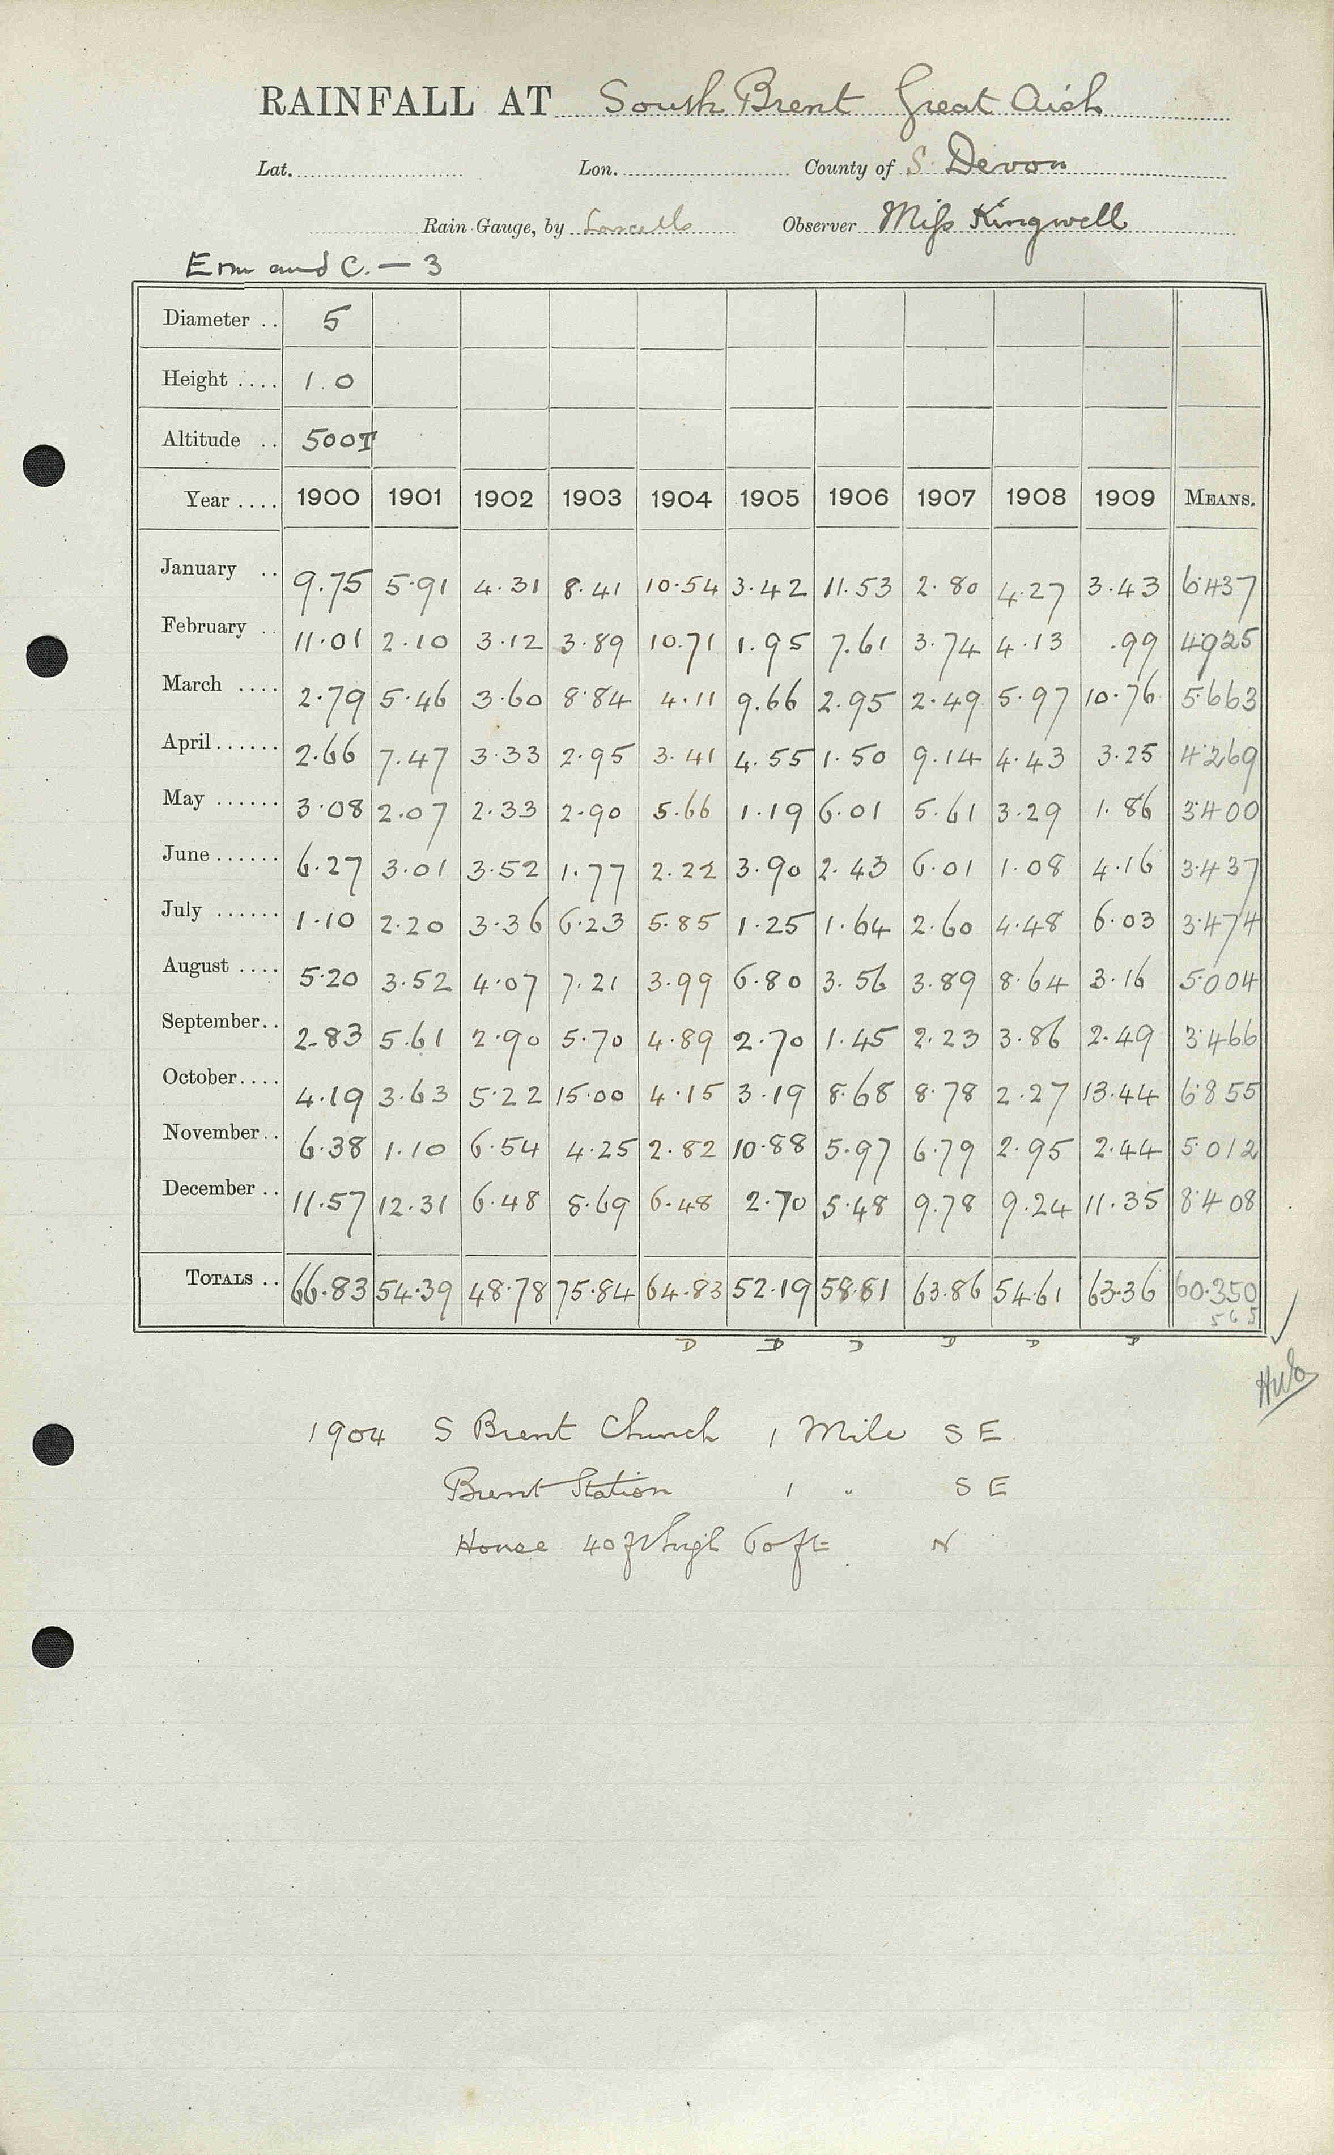 RAINFALL AT South Brent Great Aish
Lat. Lon. County of S. Devon
Rain-Gauge, by Observer Miss Kingwell
Erm and C. — 3
Diameter .. 5
Height .... 1.0
Altitude .. 500T
Year .... 1900 1901 1902 1903 1904 1905 1906 1907 1908 1909 MEANS.
January .. 9.75 5.91 4.31 8.41 10.54 3.42 11.53 2.80 4.27 3.43 6.437
February .. 11.01 2.10 3.12 3.89 10.71 1.95 7.61 3.74 4.13 .99 4.925
March .... 2.79 5.46 3.60 8.84 4.11 9.66 2.95 2.49 5.97 10.76 5.663
April ...... 2.66 7.47 3.33 2.95 3.41 4.55 1.50 9.14 4.43 3.25 4.269
May ...... 3.08 2.07 2.33 2.90 5.66 1.19 6.01 5.61 3.29 1.86 3.400
June ...... 6.27 3.01 3.52 1.77 2.22 3.90 2.43 6.01 1.08 4.16 3.437
July ...... 1.10 2.20 3.36 6.23 5.85 1.25 1.64 2.60 4.48 6.03 3.474
August .... 5.20 3.52 4.07 7.21 3.99 6.80 3.56 3.89 8.64 3.16 5.004
September .. 2.83 5.61 2.90 5.70 4.89 2.70 1.45 2.23 3.86 2.49 3.466
October .... 4.19 3.63 5.22 15.00 4.15 3.19 8.68 8.78 2.27 13.44 6.855
November .. 6.38 1.10 6.54 4.25 2.82 10.88 5.97 6.79 2.95 2.44 5.012
December .. 11.57 12.31 6.48 8.69 6.48 2.70 5.48 9.78 9.24 11.35 8.408
TOTALS .. 66.83 54.39 48.78 75.84 64.83 52.19 58.81 63.86 54.61 63.36 60.350
565
D D D D D D
1904 S Brent Church 1 Mile S E
Brent Station 1 " S E
House 40 ft high 60 ft N